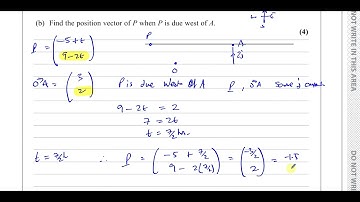 (b) Find the position vector of P when P is due west of A.
(4)
P = (-5+t
9-2t)
P
A
O
OA = (3
2)
P is due West of A
P, OA same j
9 - 2t = 2
7 = 2t
t = 7/2 hrs
t = 7/2 ∴ P = (-5 + 7/2
9 - 2(7/2)) = (-3/2
2) = -1.5
DO NOT WRITE IN THIS AREA
DO NOT